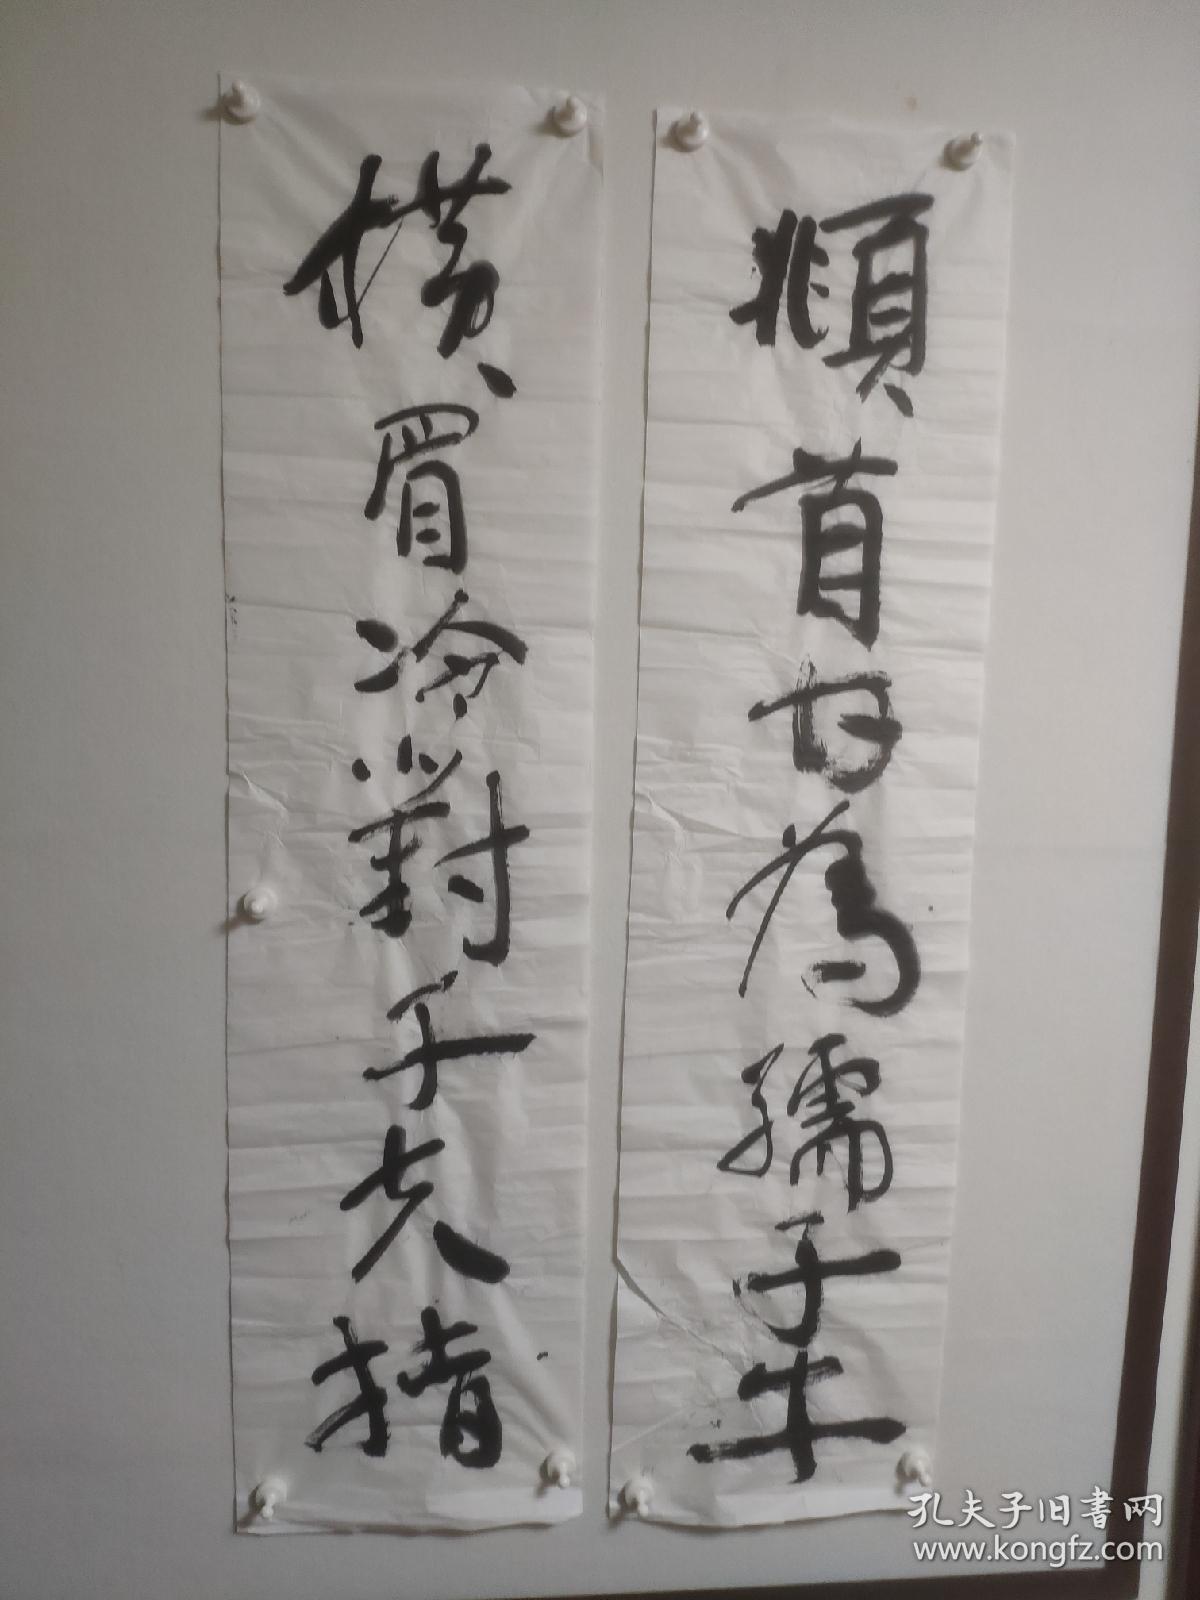 橫眉冷對千夫指
頫首甘為孺子牛
孔夫子旧書网
www.kongfz.com